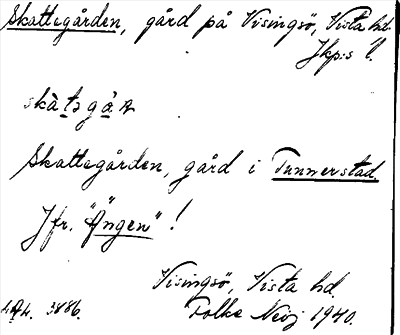 Skattegården, gård på Visingsö, Vista hd.
Jkp:s l.
skàtsgáʀ
Skattegården, gård i Tunnerstad
Jfr. "Ängen"!
Visingsö, Vista hd.
3886. Folke Neij 1940.